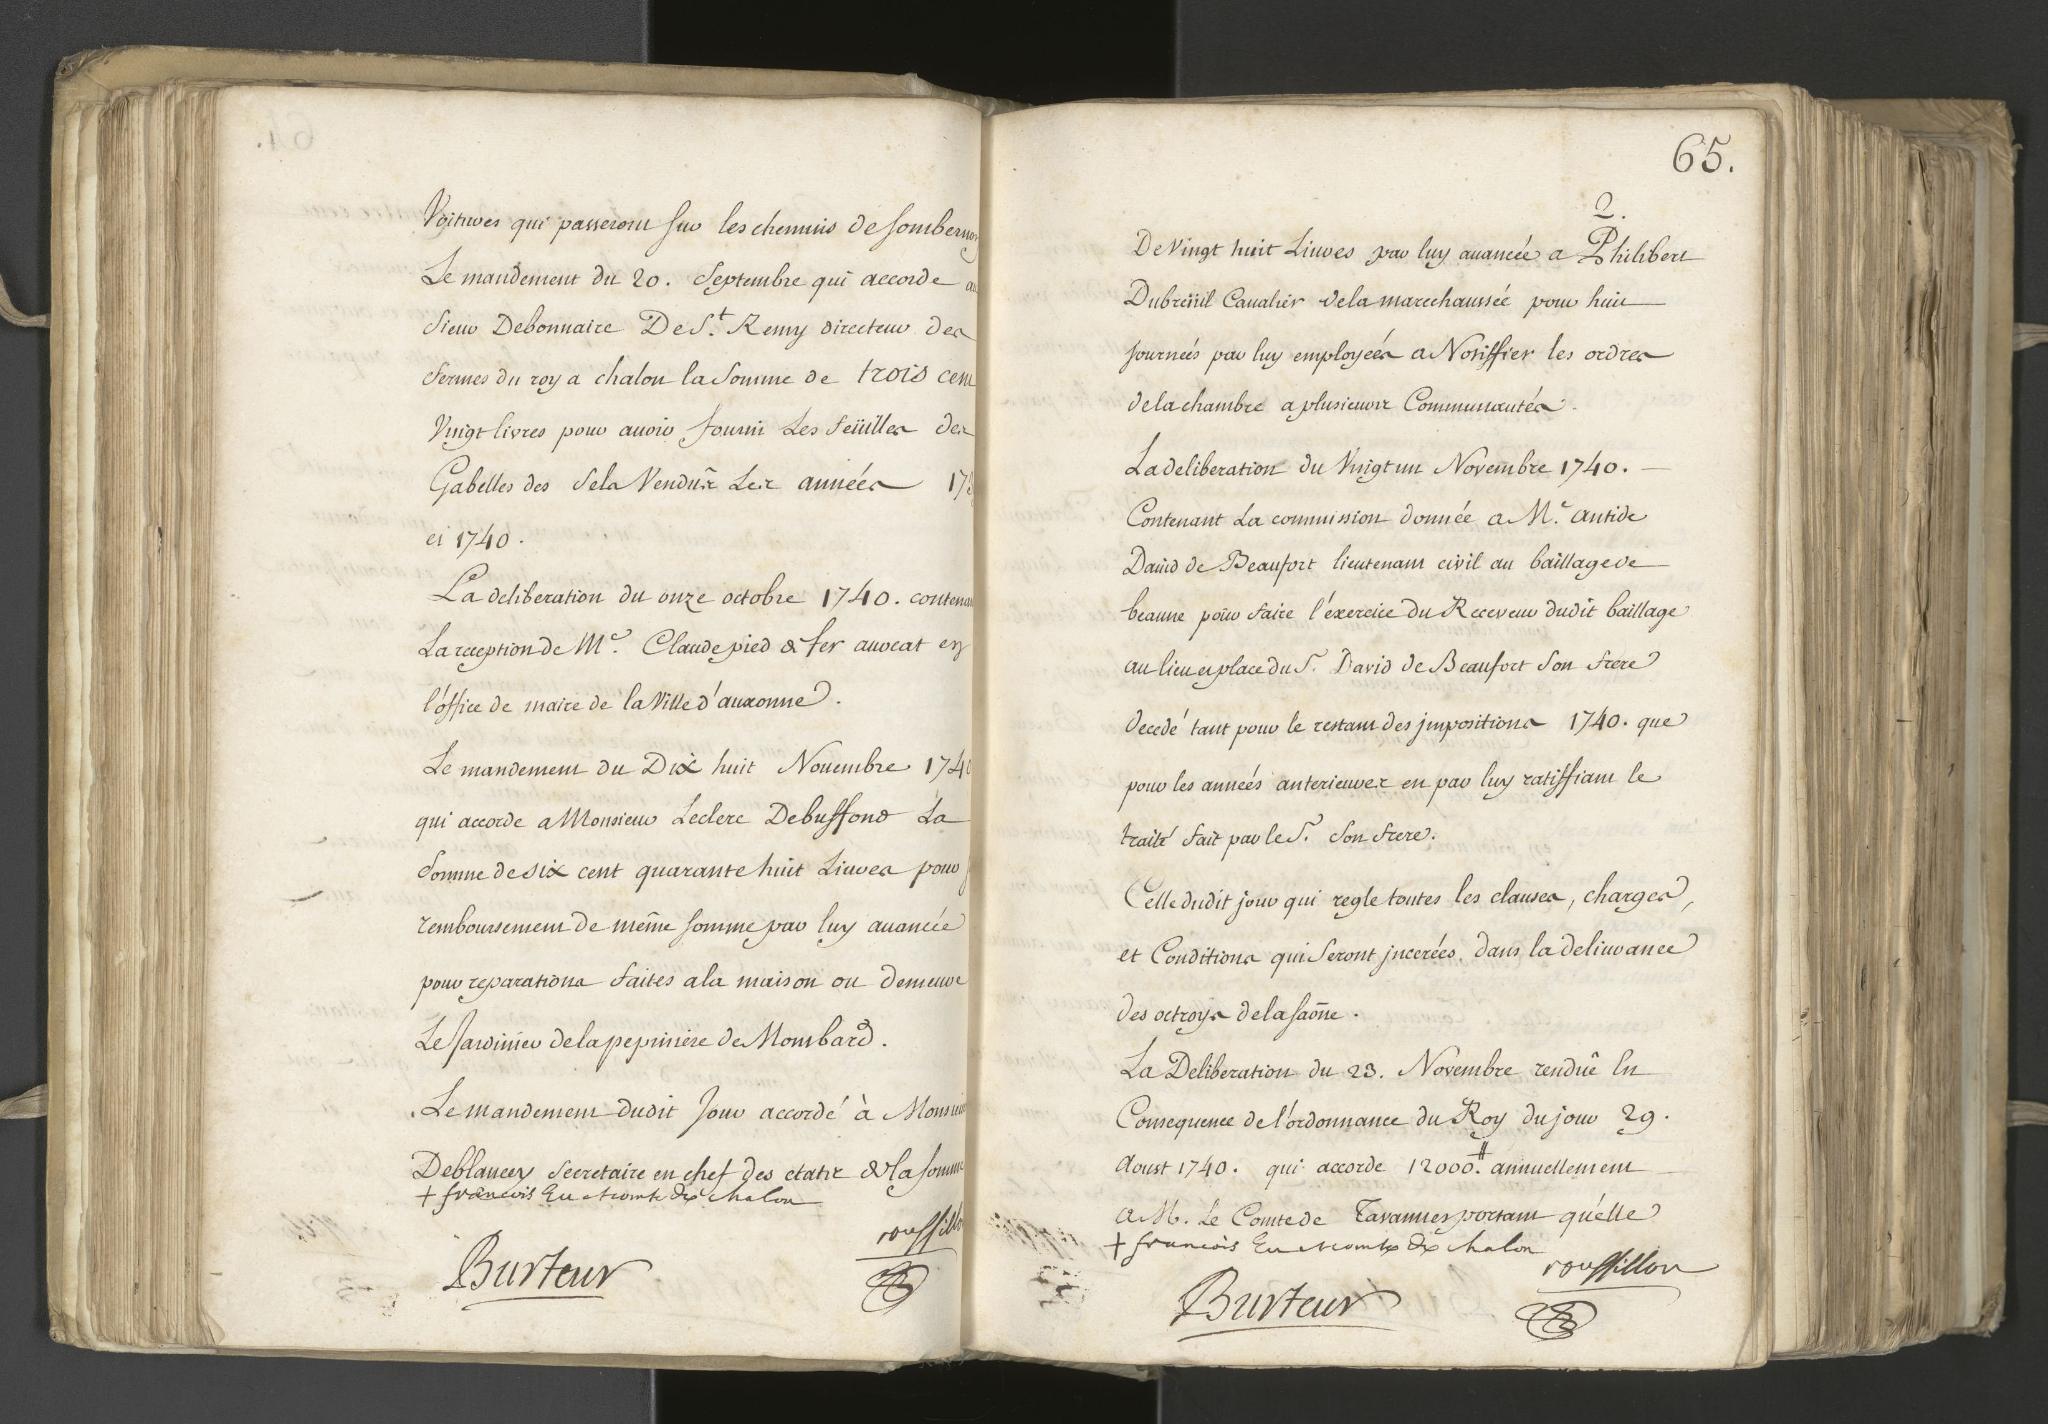 Voitures qui passeront sur les chemins de sombernon
Le mandement du 20. Septembre qui accorde au
Sieur Debonnaire De S.t Remy directeur des
fermes du roy a chalon la somme de trois cent
Vingt livres pour avoir fourni Les feüilles des
Gabelles des Sels Vendus Les années 173
et 1740.
La deliberation du onze octobre 1740. contenant
La reception de M.e Claude pied de fer avocat en
l'office de maire de la Ville d'auxonne.
Le mandement du Dix huit Novembre 1740
qui accorde a Monsieur Leclerc Debuffond La
Somme de six cent quarante huit Livres pour
remboursement de même somme par luy avancée
pour reparations faites a la maison ou demeure
Le Jardinier de la pepiniere de Mombard.
Le mandement dudit Jour accordé à Monsieur
Deblancey Secretaire en chef des etats de la somme
+ francois Ev. et comte de chalon
rouffillon
Burteur
65.
2.
De Vingt huit Livres par luy avancée a Philibert
Dubreüil Cavalier de la marechaussée pour huit
journeés par luy employeés a Notiffier les ordres
de la chambre a plusieurs Communautés.
La deliberation du Vingt un Novembre 1740.
Contenant La commission donnée a M.e antide
David de Beaufort lieutenant civil au baillage de
beaune pour faire l'éxercice du Receveur dudit baillage
au lieu et place du S.r David de Beaufort Son frere
decedé tant pour le restant des jmpositions 1740. que
pour les anneés anterieures en par luy ratiffiant le
traité fait par le S.r Son frere.
Celle dudit jour qui regle toutes les clauses, charges,
et Conditions qui Seront jncerées dans la delivrance
des octroys de la saône.
La Deliberation du 23. Novembre rendüe En
Consequence de l'ordonnance du Roy du jour 29.
Aoust 1740. qui accorde 12000.# annuellement
a M. Le Comte de Tavannes portant qu'elle
+ francois Ev. et comte de chalon
rouffillon
Burteur